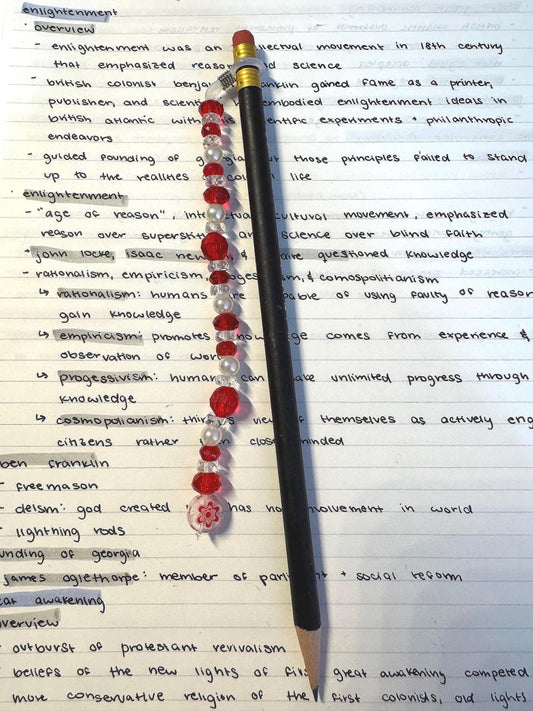 enlightenment
· overview
- enlightenment was an lectual movement in 18th century
that emphasized reason d science
- british colonist benja klin gained fame as a printer,
publisher, and scienti embodied enlightenment ideals in
british atlantic with is entific experiments + philanthropic
endeavors
- guided founding of g gia ut those principles failed to stand
up to the realities colo l life
· enlightenment
- "age of reason", intel ctua ultural movement, emphasized
reason over superstiti an science over blind faith
· john locke, isaac new n, & aire questioned knowledge
- rationalism, empiricism, ogress m, & comospolitianism
↳ rationalism: humans re pable of using faulty of reason
gain knowledge
↳ empiricism: promotes now ge comes from experience &
observation of wor
↳ progessivism: human can ake unlimited progress through
knowledge
↳ cosmopolianism: thin s view f themselves as actively eng
citizens rather an close minded
ben franklin
- freemason
- deism: god created has no volvement in world
- lightning rods
unding of georgia
james oglethorpe: member of par nt + social reform
eat awakening
overview
- outburst of protestant revivalism
- beliefs of the new lights of firs great awakening competed
more conservative religion of the first colonists, old lights